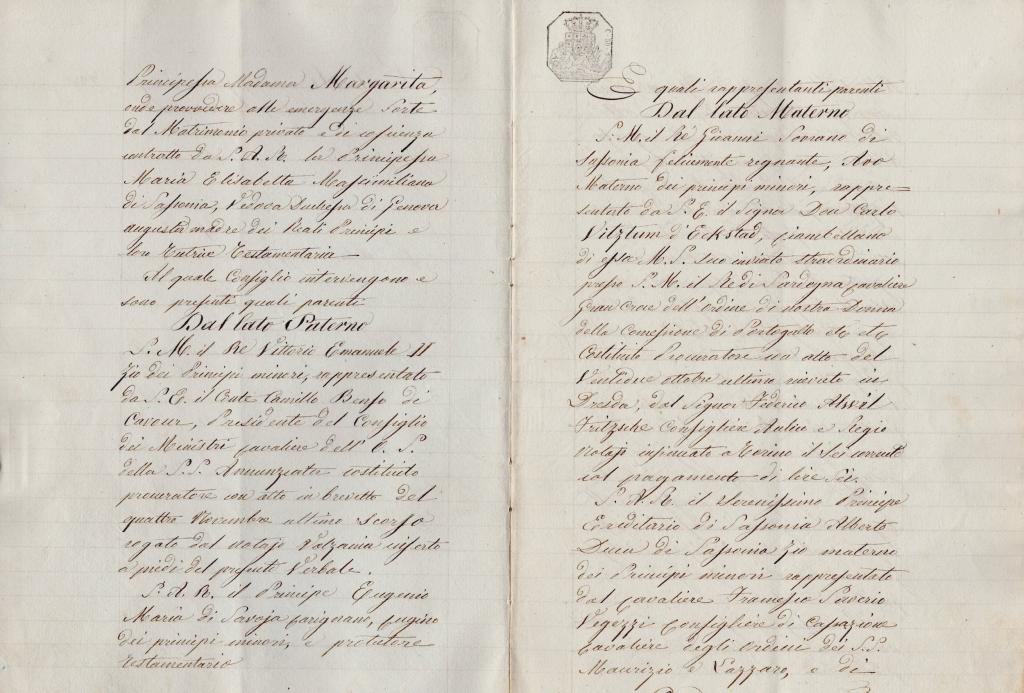 Principessa Madama Margarita,
onde provvedere alle emergenze sorte
dal Matrimonio privato e di coscienza
contratto da S. A. R. la Principessa
Maria Elisabetta Massimiliana
di Sassonia, Vedova Duchessa di Genova
augusta madre dei Reali Principi e
loro Tutrice Testamentaria
Al quale Consiglio intervengono e
sono presenti quali parenti
Dal lato Paterno
S. M. il Re Vittorio Emanuele II
zio dei Principi minori, rappresentato
da S. E. il Conte Camillo Benso di
Cavour, Presidente del Consiglio
dei Ministri cavaliere dell' O. S.
della S.S. Annunziata costituito
procuratore con atto in brevetto del
quattro Novembre ultimo scorso
rogato dal notajo inserto
a piedi del presente Verbale.
S. A. R. il Principe Eugenio
Maria di Savoja Carignano, cugino
dei principi minori, e protutore
testamentario
E quali rappresentanti parenti
Dal lato Materno
S. M. il Re Gioanni Sovrano di
Sassonia felicemente regnante, Avo
Materno dei principi minori, rappre=
sentato da S. E. il Signor Don Carlo
Vitztum d'Eckstad, ciambellano
di essa M. S. suo inviato straordinario
presso S. M. il Re di Sardegna cavaliere
Gran Croce dell'ordine di nostra Donna
della Concezione di Portogallo etc etc
Costituito Procuratore con atto del
Ventidue ottobre ultimo ricevuto in
Dresda, dal Signor Federico
Fritzsche Consigliere Aulico e Regio
notajo insinuato a Torino il sei corrente
col pagamento di lire sei.
S. A. R. il Serenissimo Principe
Ereditario di Sassonia Alberto
Duca di Sassonia zio materno
dei Principi minori rappresentato
dal cavaliere Francesco Saverio
Vegezzi Consigliere di Cassazione
Cavaliere degli Ordini dei S.S.
Maurizio e Lazzaro, e di